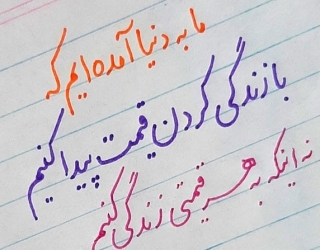 ما به دنیا آمده ایم که
با زندگی کردن قیمت پیدا کنیم
نه اینکه به هر قیمتی زندگی کنیم